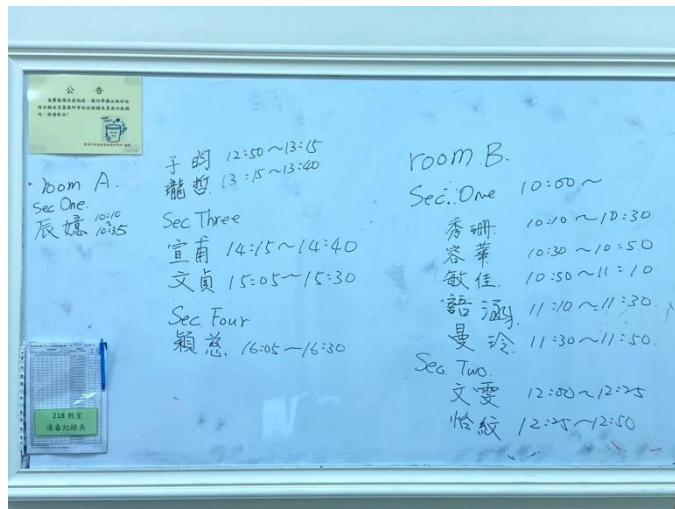 公 告
room A.
Sec One.
辰嬑 10:10~10:35
子昀 12:50~13:15
龍哲 13:15~13:40
Sec Three
宣甫 14:15~14:40
文貞 15:05~15:30
Sec. Four
穎慈 16:05~16:30
room B.
Sec. One 10:00~
秀珊 10:10~10:30
容華 10:30~10:50
敏佳 10:50~11:10
語涵 11:10~11:30
曼泠 11:30~11:50
Sec. Two.
文雯 12:00~12:25
怡紋 12:25~12:50
218 教室
消毒紀錄表